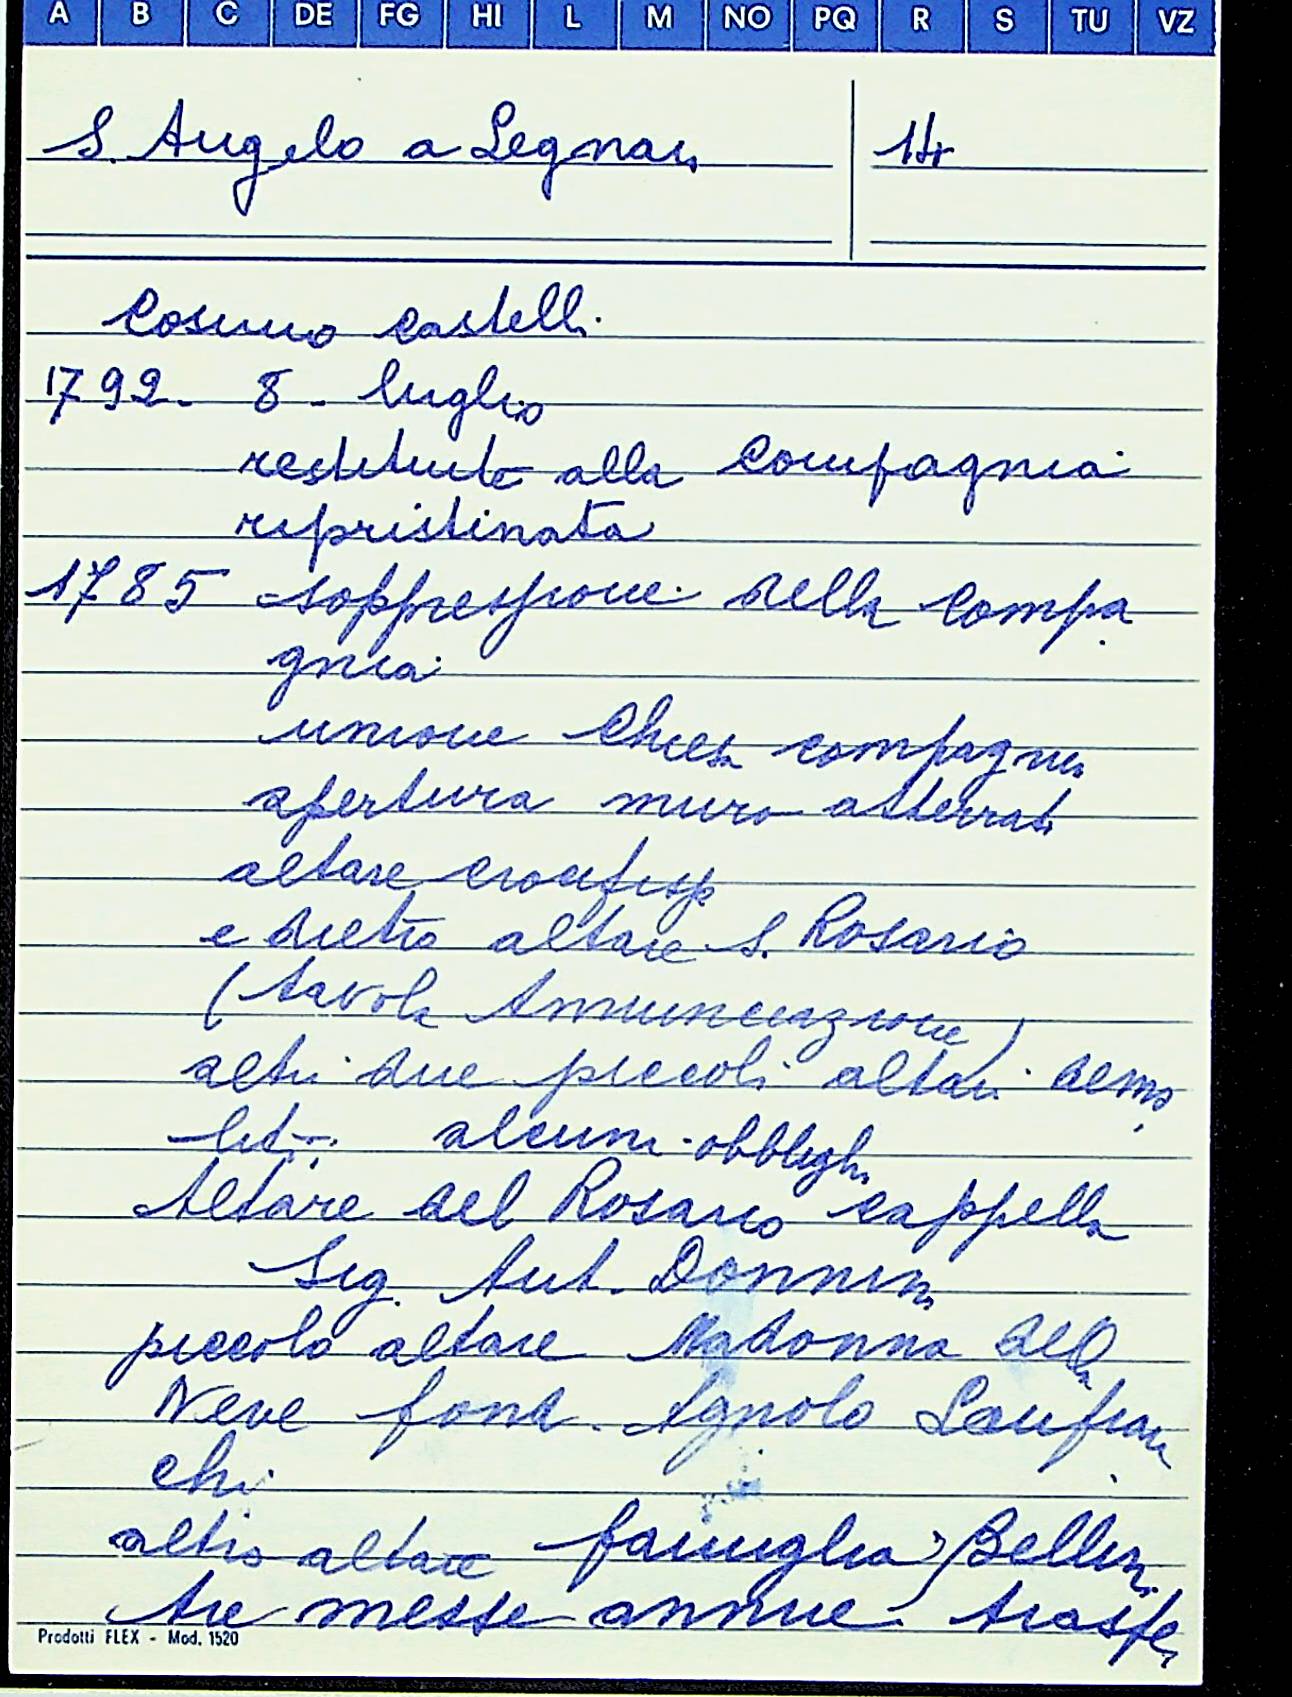 A B C DE FG HI L M NO PQ R S TU VZ
S. Angelo a Legnaia
Cosimo Castelli
1792. 8. luglio
restituito alla Compagnia
ripristinata
1785 soppressione della Compa
gnia
unione Chiesa compagnia
apertura muro atterrato
altare crocifisso
e dietro altare S. Rosario
(tavola Annunciazione)
altri due piccoli altari demo
liti. alcuni obblighi
Altare del Rosario cappella
Sig. Ant. Donnini
piccolo altare Madonna della
Neve fond. Agnolo Lanfran
chi
altro altare famiglia Bellini
tre messe annue. trasfer
Prodotti FLEX - Mod. 1520